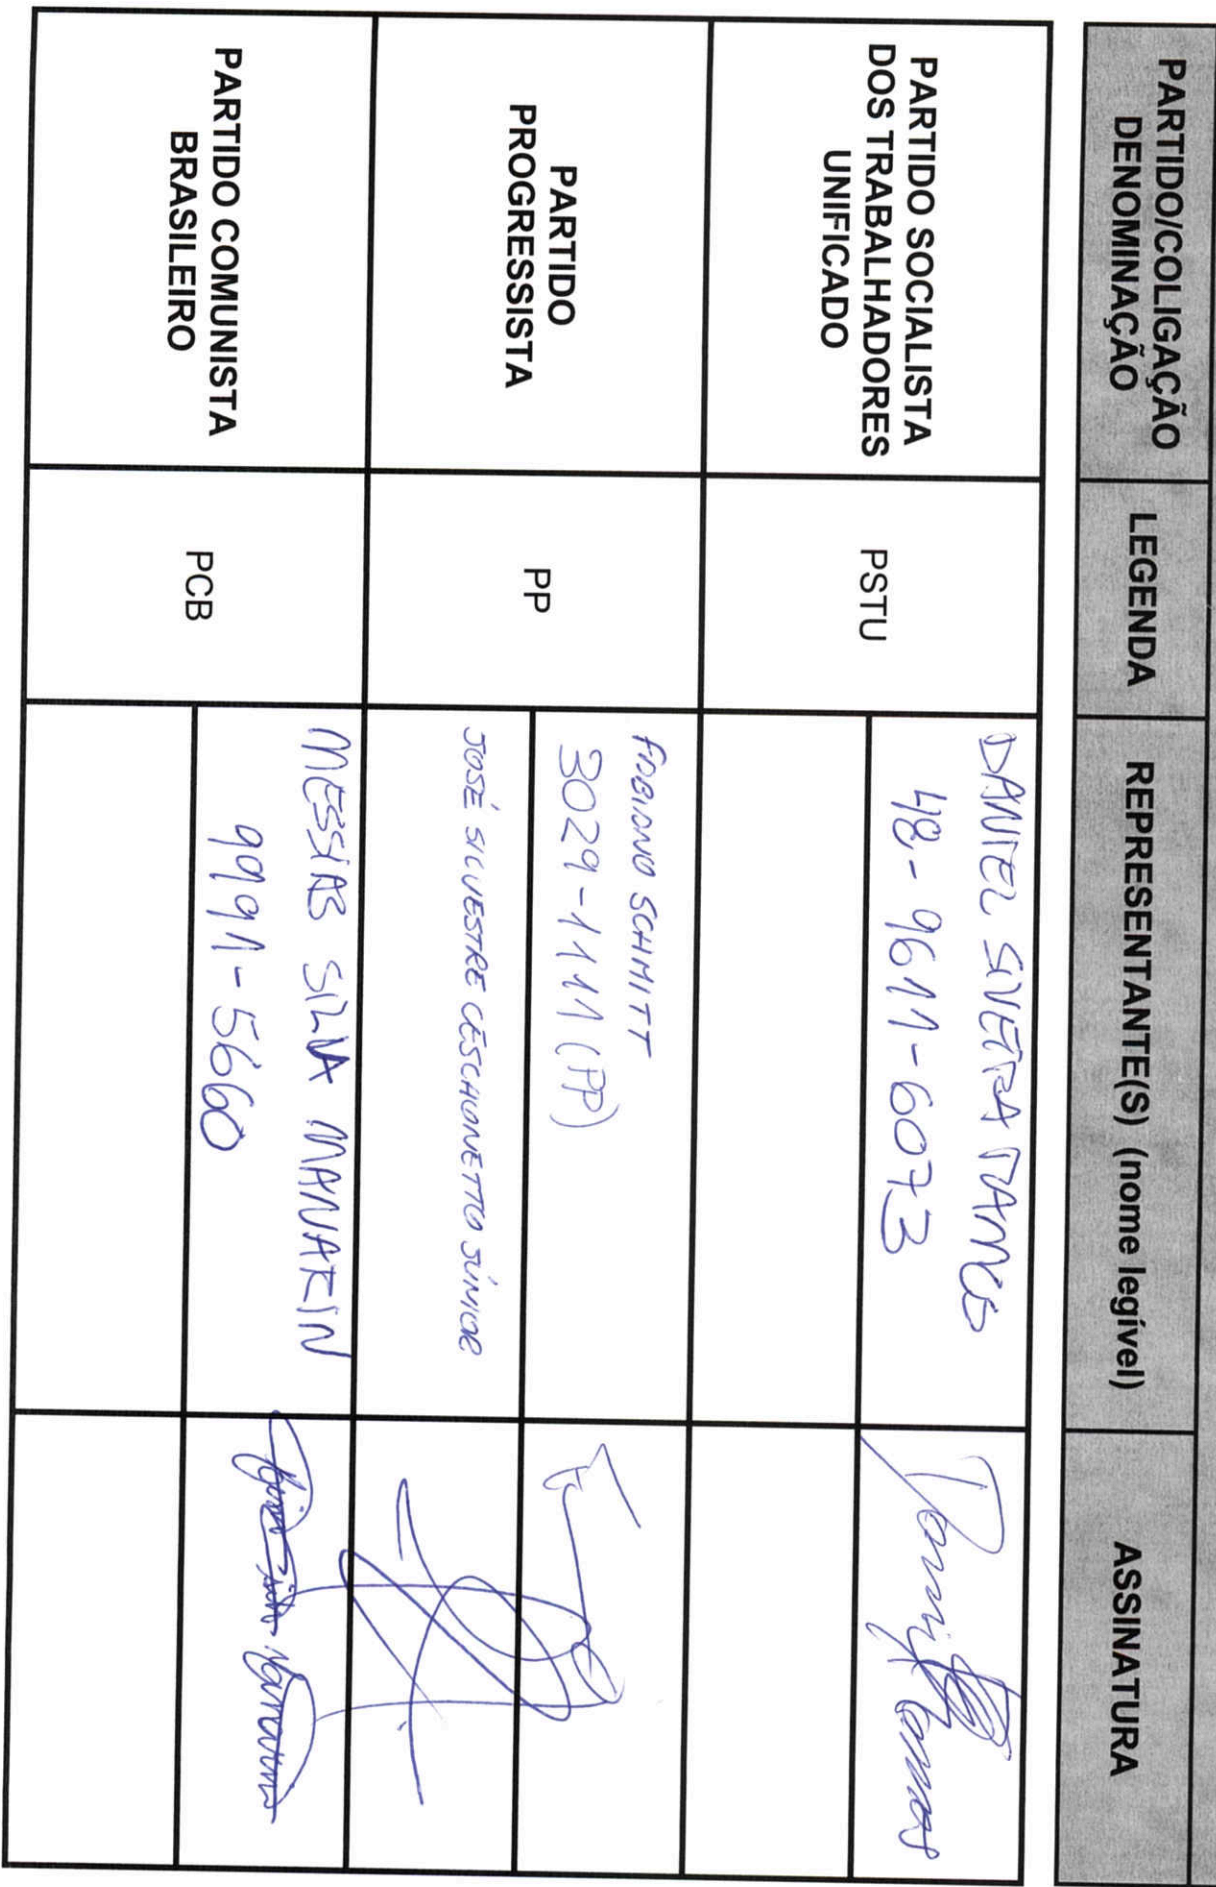 PARTIDO/COLIGAÇÃO
DENOMINAÇÃO
LEGENDA
REPRESENTANTE(S) (nome legível)
ASSINATURA
PARTIDO SOCIALISTA
DOS TRABALHADORES
UNIFICADO
PSTU
DANIEL SILVEIRA RAMOS
48-9611-6073
PARTIDO
PROGRESSISTA
PP
FABIANO SCHMITT
3029-1111 (PP)
JOSÉ SILVESTRE CESCHONETTO JÚNIOR
PARTIDO COMUNISTA
BRASILEIRO
PCB
MESSIAS SILVA MANARIN
9991-5660